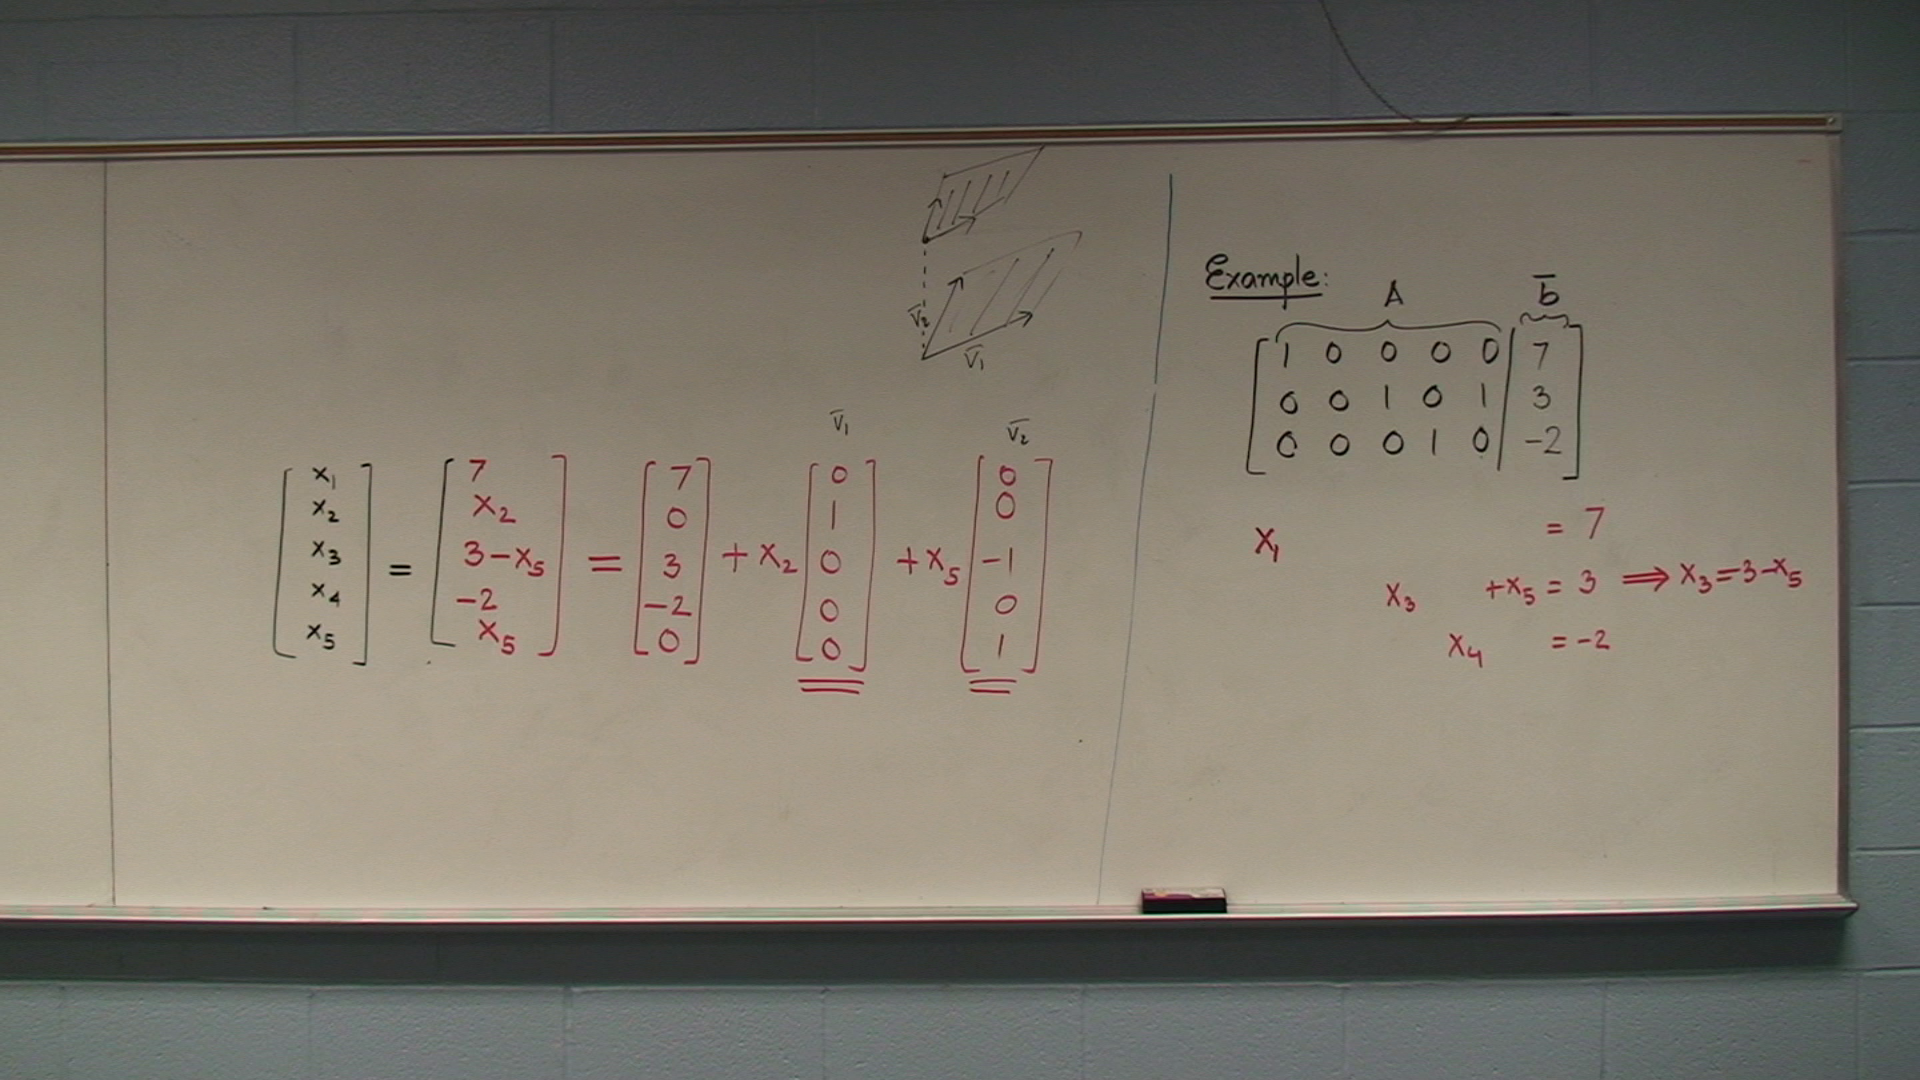 v̄₂
v̄₁
v̄₁ v̄₂
[x₁ x₂ x₃ x₄ x₅] = [7 x₂ 3-x₅ -2 x₅] = [7 0 3 -2 0] + x₂ [0 1 0 0 0] + x₅ [0 0 -1 0 1]
Example:
A b̄
1 0 0 0 0 | 7
0 0 1 0 1 | 3
0 0 0 1 0 | -2
x₁ = 7
x₃ +x₅ = 3 ⟹ x₃=3-x₅
x₄ = -2